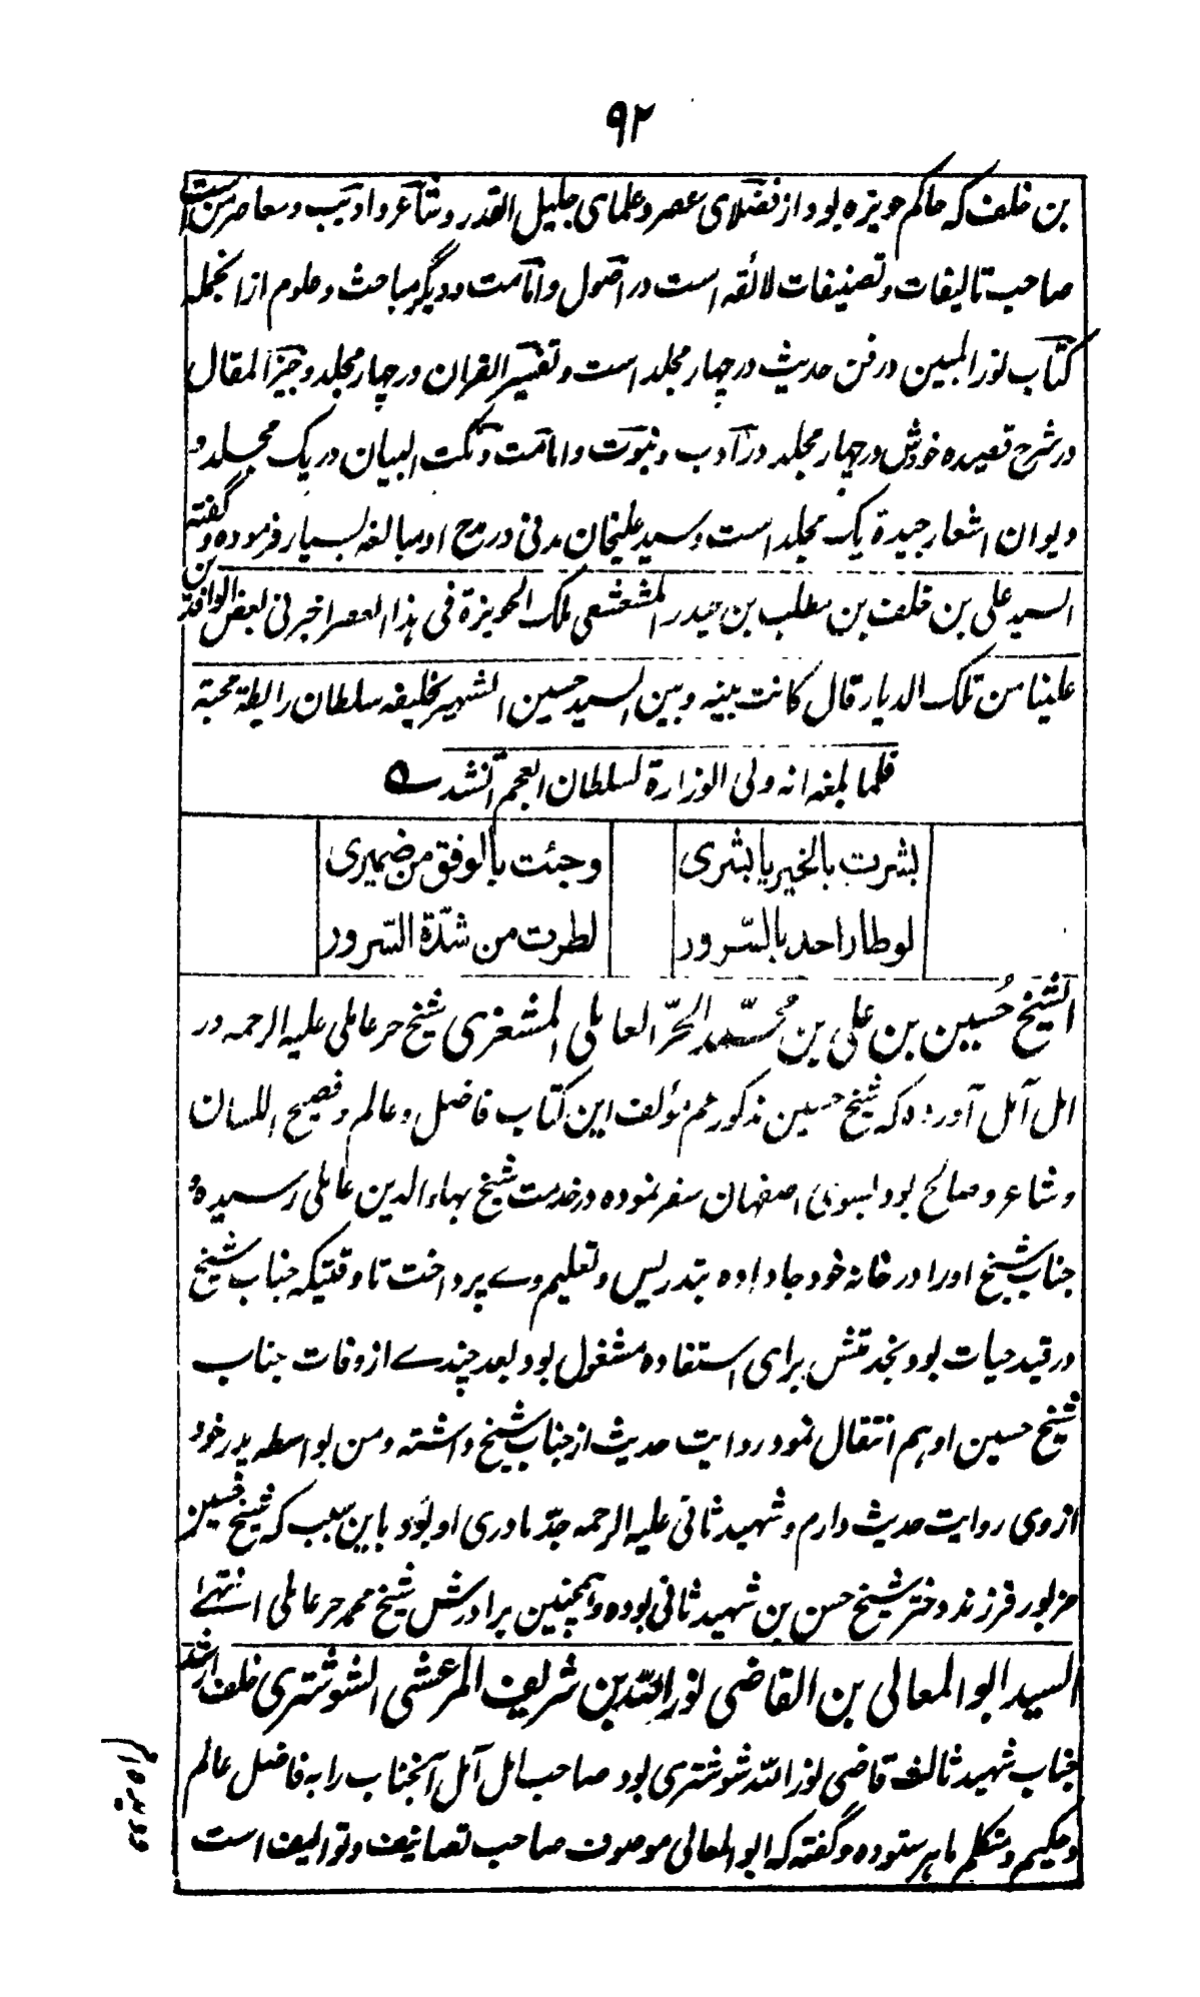 ۹۲
بن خلف که حاکم حویزه بود از فضلای عصر و علمای جلیل القدر و شاعر و ادیب و معاصر من است
صاحب تالیفات و تصنیفات لائقه است در اصول و امامت و دیگر مباحث و علوم از انجمله
کتاب نور المبین در فن حدیث در چهار مجلد است و تفسیر القران در چهار مجلد و خیر المقال
در شرح قصیده خودش در چهار مجلد در ادب و نبوت و امامت و نکت البیان در یک مجلد و
دیوان اشعار جیدة یک مجلد است و سید علیخان مدنی در مدح او مبالغه بسیار فرموده و گفته
السید علی بن خلف بن مطلب بن حیدر المشعشعی ملک الحویزة فی هذا العصر اخبرنی بعض الوافدین
علینا من تلک الدیار قال کانت بینه و بین السید حسین الشهیر بخلیفه سلطان رابطة محبة
فلما بلغه انه ولی الوزارة لسلطان العجم انشد
بشرت بالخیر یا بشری وجئت بالوفق من ضمیری
لو طار احد بالسّرور لطرت من شدّة السّرور
الشیخ حُسین بن علی بن مُحمّد الحرّ العاملی المشغری شیخ حر عاملی علیه الرحمه در
امل آمل آورده که شیخ حسین مذکور عم مؤلف این کتاب فاضل و عالم و فصیح اللسان
و شاعر و صالح بود بسوی اصفهان سفر نموده در خدمت شیخ بهاء الدین عاملی رسیده و
جناب شیخ او را در خانه خود جا داده بتدریس و تعلیم وے پرداخت تا وقتیکه جناب شیخ
در قید حیات بود بخدمتش برای استفاده مشغول بود بعد چندے از وفات جناب
شیخ حسین او هم انتقال نمود روایت حدیث از جناب شیخ داشته و من بواسطه پدر خود
از وی روایت حدیث دارم و شهید ثانی علیه الرحمه جدّ مادری او بُود باین سبب که شیخ حسین
مزبور فرزند دختر شیخ حسن بن شهید ثانی بوده و همچنین برادرش شیخ محمد حر عاملی انتهے
السید ابو المعالی بن القاضی نور اللّٰه بن شریف المرعشی الشوشتری خلف ارشد
جناب شهید ثالث قاضی نور اللّٰه شوشتری بود صاحب امل آمل آنجناب را به فاضل عالم
و حکیم و متکلم ماهر ستوده و گفته که ابو المعالی موصوف صاحب تصانیف و توالیف است